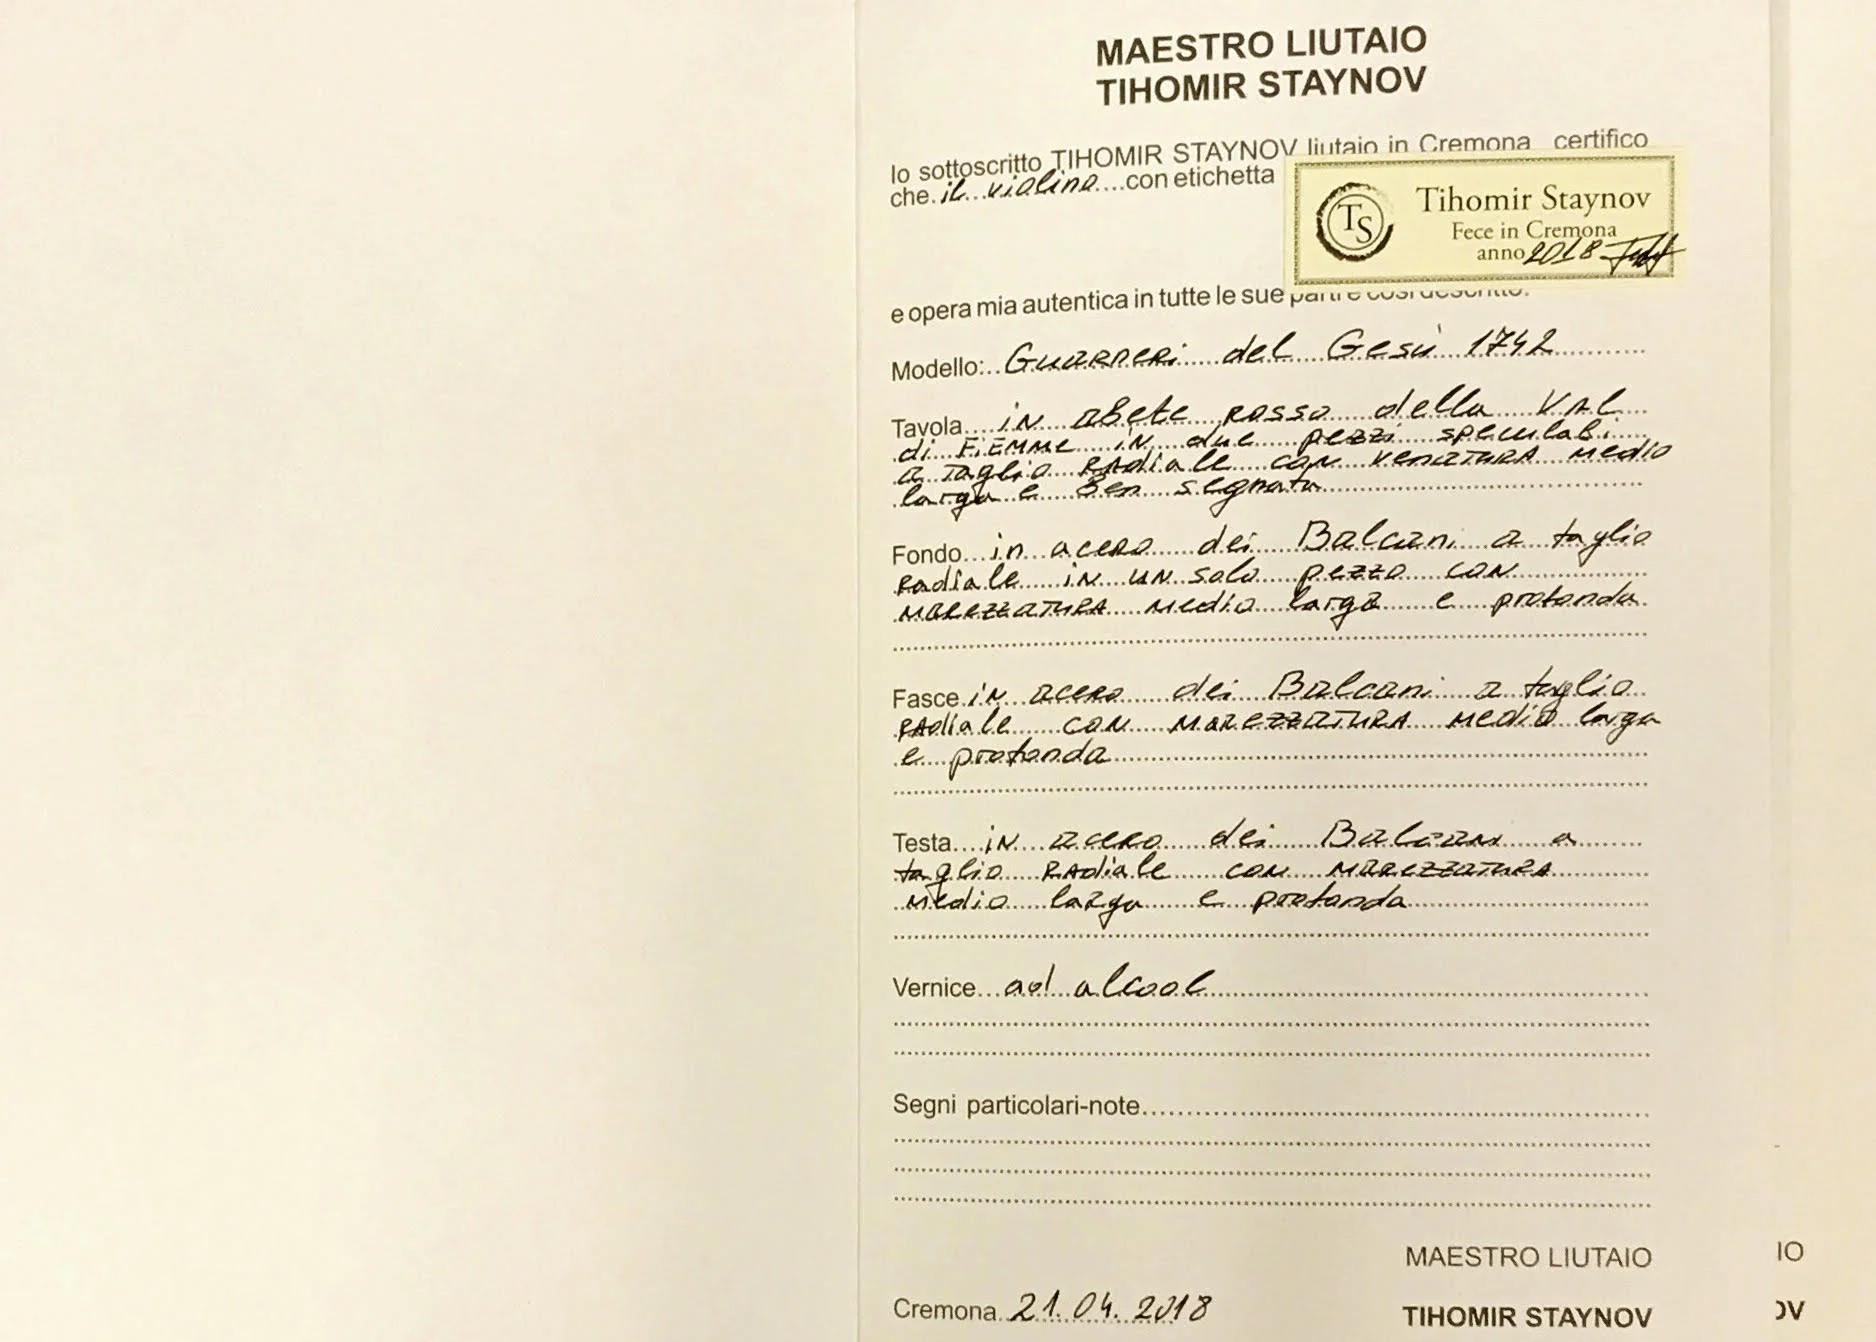 MAESTRO LIUTAIO
TIHOMIR STAYNOV
Io sottoscritto TIHOMIR STAYNOV liutaio in Cremona certifico
che il violino con etichetta
TS
Tihomir Staynov
Fece in Cremona
anno 2018
e opera mia autentica in tutte le sue parti e così descritto:
Modello: Guarneri del Gesù 1742
Tavola in abete rosso della VAL
di FIEMME in due pezzi speculari
a taglio radiale con venatura medio
larga e ben segnata
Fondo in acero dei Balcani a taglio
radiale in un solo pezzo con
marezzatura medio larga e profonda
Fasce in acero dei Balcani a taglio
radiale con marezzatura medio larga
e profonda
Testa in acero dei Balcani a
taglio radiale con marezzatura
medio larga e profonda
Vernice ad alcool
Segni particolari-note
MAESTRO LIUTAIO
IO
Cremona 21.04.2018
TIHOMIR STAYNOV
OV